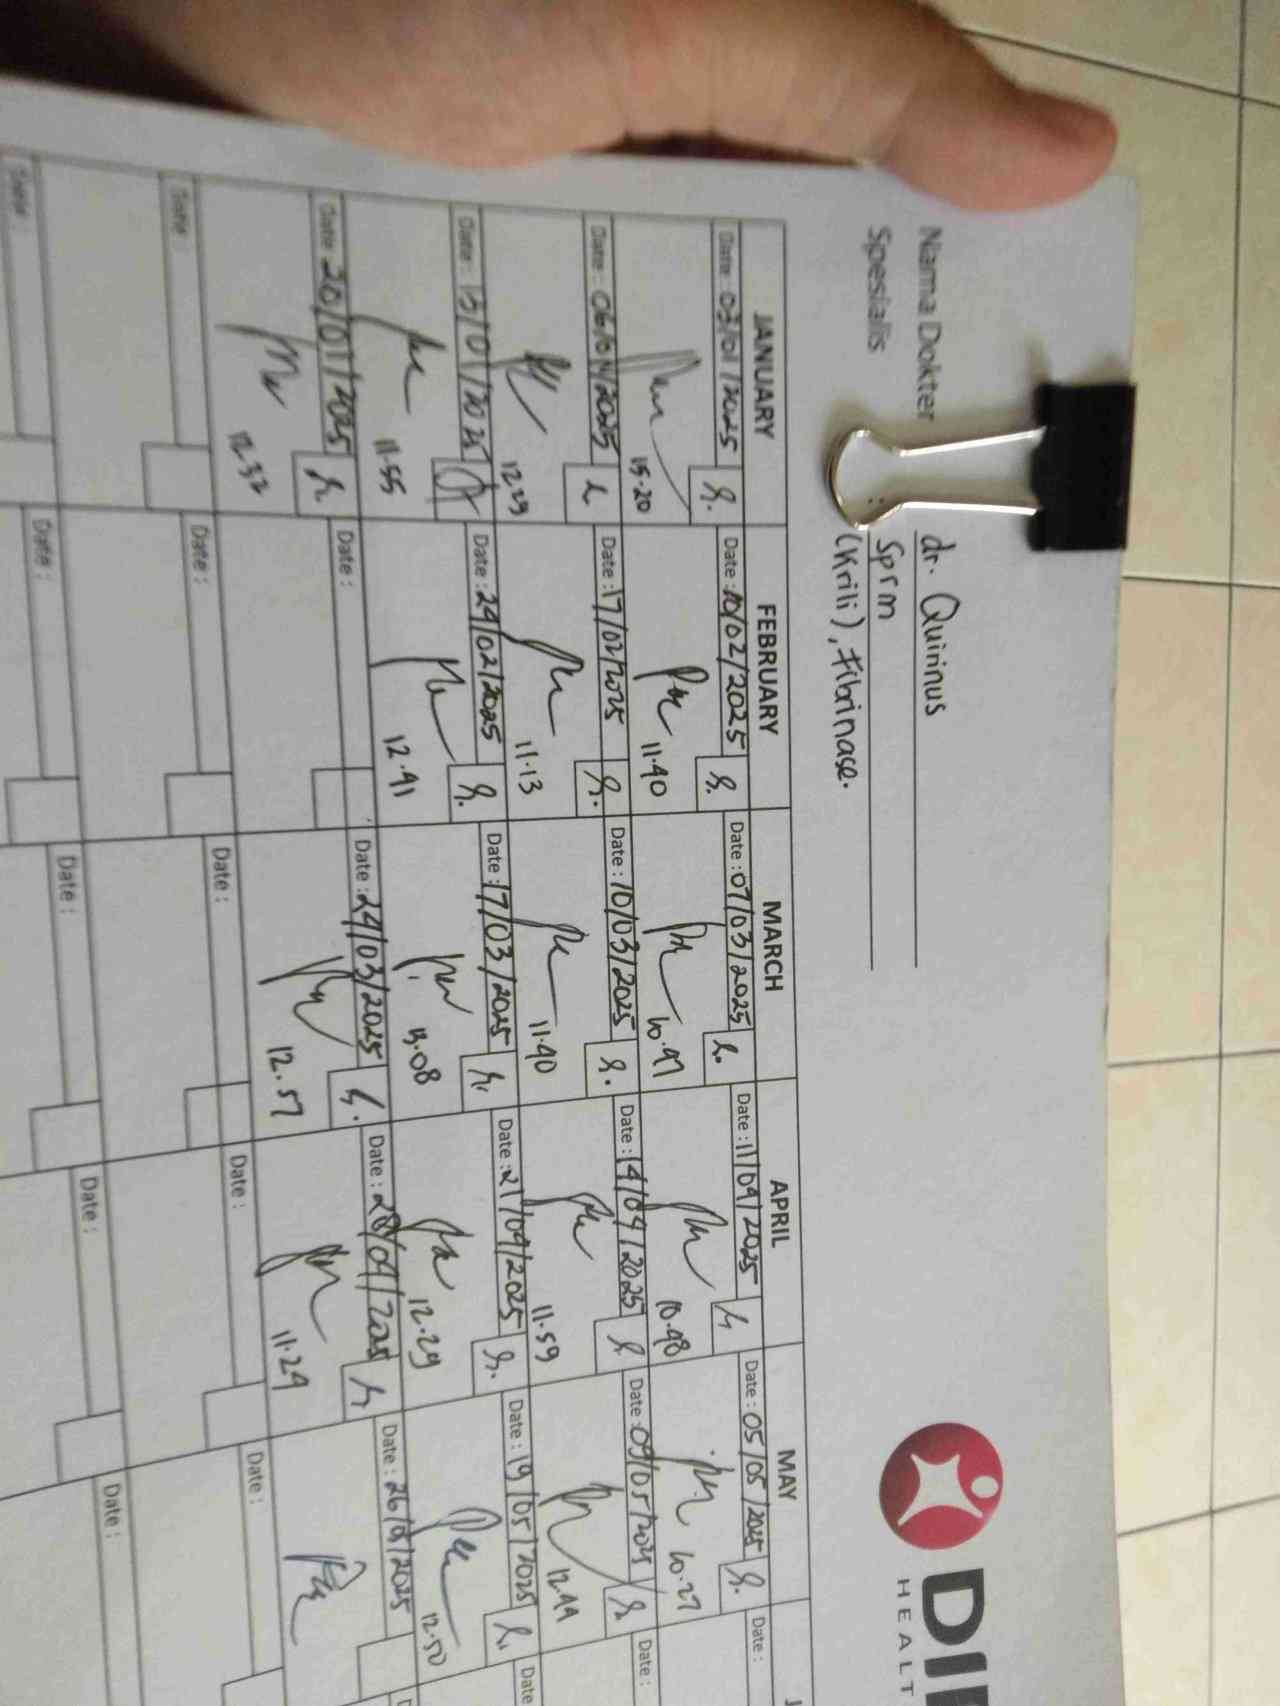 Nama Dokter : dr. Quirinus
Spesialis : Sprm
(Krili), Fibrinase.
DI
HEALT
JANUARY FEBRUARY MARCH APRIL MAY J
Date : 03/01/2025 Date : 10/02/2025 Date : 07/03/2025 Date : 11/04/2025 Date : 05/05/2025 Date :
15.20 11.40 10.47 10.48 10.27
Date : 06/01/2025 Date : 17/02/2025 Date : 10/03/2025 Date : 14/04/2025 Date : 09/05/2025 Date :
12.29 11.13 11.40 11.59 12.44
Date : 13/01/2025 Date : 24/02/2025 Date : 17/03/2025 Date : 21/04/2025 Date : 19/05/2025 Date
11.55 12.41 13.08 12.29 12.50
Date : 20/01/2025 Date : Date : 24/03/2025 Date : 28/04/2025 Date : 26/05/2025
12.32 12.57 11.24
Date : Date : Date : Date : Date :
Date : Date : Date : Date : Date :